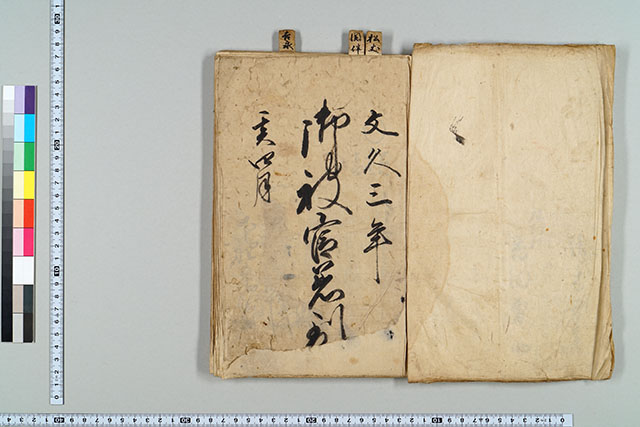 文久三年
御被官着到
亥四月